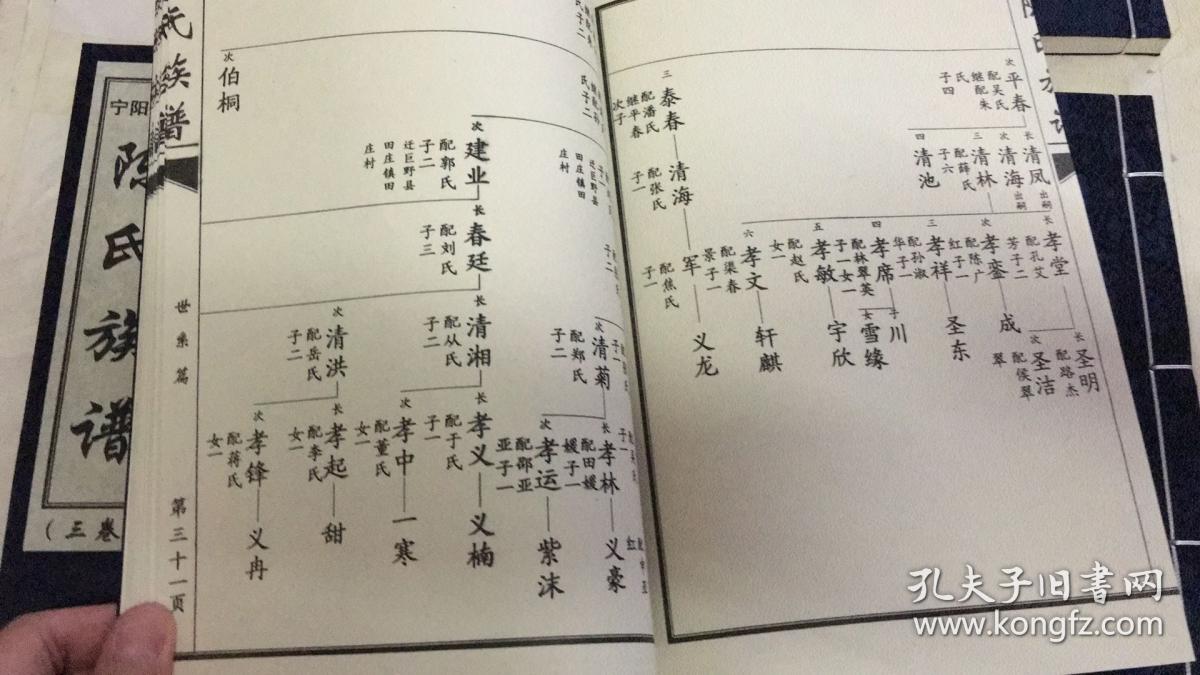 次 平春
配吴氏
继配朱
氏
子四
长 清凤
出嗣
次 清海
出嗣
三 清林
配薛氏
子六
四 清池
长 孝堂
配孔艾
芳子二
次 孝銮
配陈广
红子一
三 孝祥
配孙淑
华子一
四 孝席
配林翠英
子一女一
五 孝敏
配赵氏
女一
六 孝文
配渠春
景子一
长 圣明
配路杰
次 圣洁
配侯翠
翠
成
圣东
子 川
女 雪缘
宇欣
轩麒
三 泰春
配潘氏
继平春
次子
清海
配张氏
子一
军
配焦氏
子一
义龙
氏族谱
世系篇
第三十一页
次 清菊
配郑氏
子二
长 孝林
配田媛
媛子一
义豪
次 孝运
配邵亚
亚子一
紫沫
次 建业
配郭氏
子二
迁巨野县
田庄镇田
庄村
长 春廷
配刘氏
子三
长 清湘
配从氏
子二
长 孝义
配于氏
子一
义楠
次 孝中
配董氏
女一
一寒
次 清洪
配岳氏
子二
长 孝起
配李氏
女一
甜
次 孝锋
配蒋氏
女一
义冉
次 伯桐
宁阳
陈氏族谱
(三卷
孔夫子旧书网
www.kongfz.com